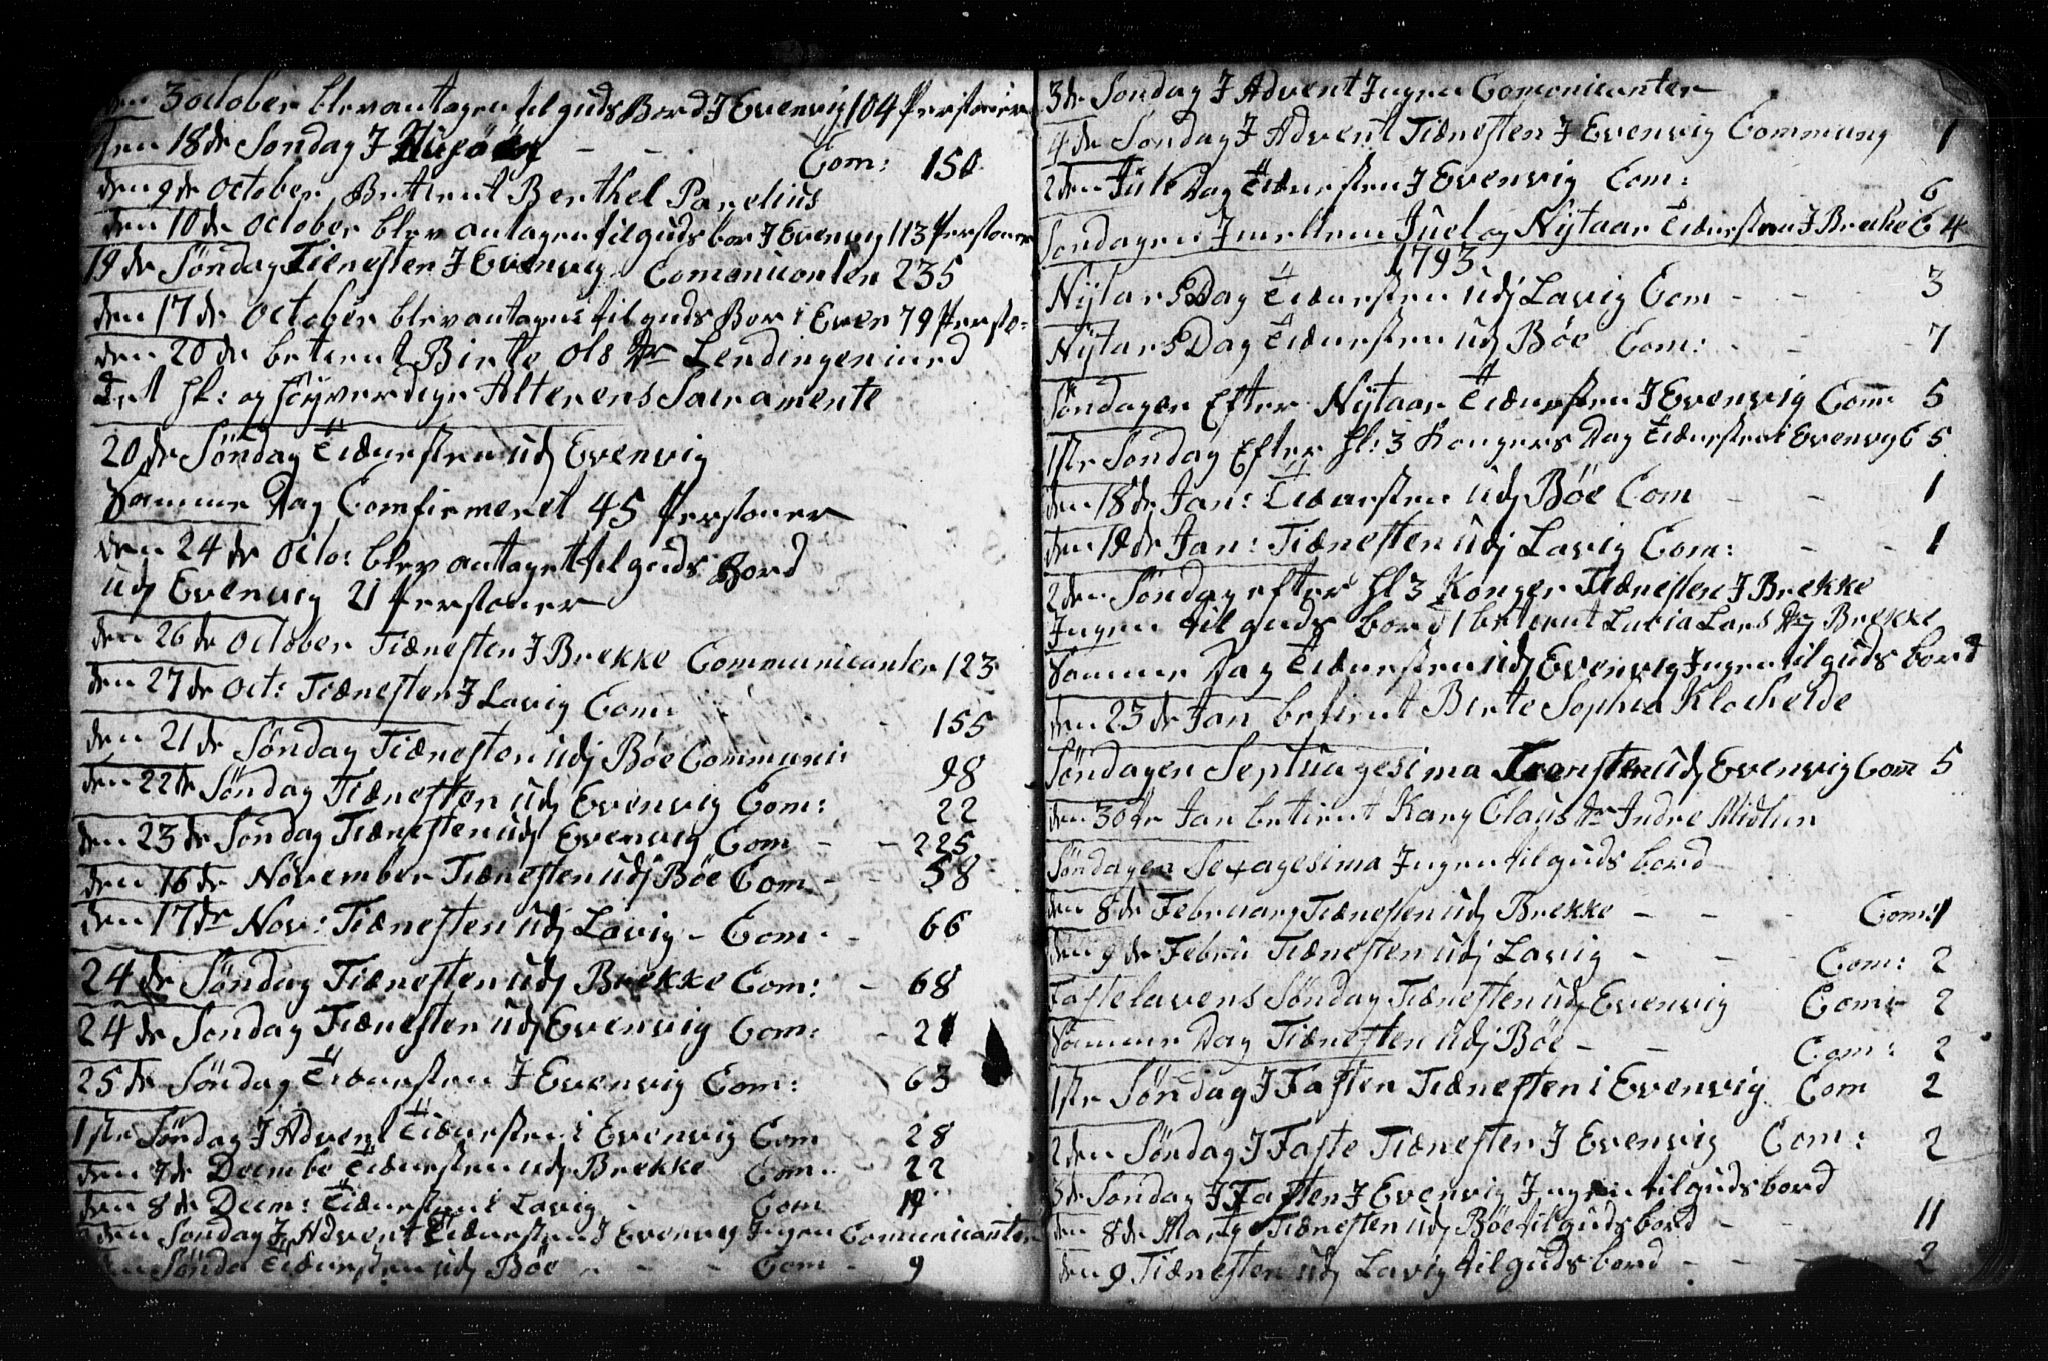 den 3 october blev antagen til guds Bord J Evenvig 104 Perstoner
den 18de Sondag J Husöÿ - - Com: 150
den 9de October Betient Berthel Parelius
den 10de october blev antagen til guds bor J Evenvig 113 Perstoner
19de Søndag Tienesten J Evenvig Comonicanten 235
den 17de October blev antagen til guds Bor i Even 79 Persto-
den 20de betient Birte Ols Dtr Lendingen med
det hl: og høyverdige Alterens Sacramente
20de Søndag Tieenesten udj Evenvig
Samme Dag Comfirmeret 45 Perstoner
den 24de octo: blev antaget til guds Bord
udj Evenvig 21 Perstoner
den 26de October Tienesten J Brekke Communicanter 123
den 27de Oct: Tienesten J Lavig Com: 155
den 21de Søndag Tienesten udj Bøe Communi: 98
den 22de Søndag Tienesten udj Evenvig Com: 22
den 23de Søndag Tienesten udj Evenvig Com - - 225
den 16de November Tienesten udj Bøe Com - - 58
den 17de Nov: Tienesten udj Lavig - Com - 66
24de Søndag Tienesten udj Brekke Com: - 68
24de Søndag Tienesten udj Evenvig Com: - 21
25de Søndag Tieenesten J Evenvig Com: 63
1ste Søndag J Advent Tieenesten i Evenvig Com 28
den 7de Decembe Tieenesten udj Brekke Com 22
den 8de Decem: Tieenesten i Lavig - Com
2den Søndag J Advent Tieenesten J Evenvig Jngen Comunicanter
Sønda Tieenesten udj Bøe - - - Com - 9
3de Søndag J Advent Jngen Comonicanter
4de Søndag J Advent Tienesten J Evenvig Commung 1
2den Jule Dag Tieenesten J Evenvig Com: 6
Søndagen Jmellem Juel og Nytaar Tieenesten J Brekke C 4
1793
Nytars Dag Tieenesten udj Lavig Com - - - 3
Nytars Dag Tieenesten udj Bøe Com: - - - 7
Søndagen Efter Nytaar Tieenesten J Evenvig Com 5
1ste Søndag Efter hl: 3 Kongers Dag Tieenesten i Evenvig C 5
den 18de Jan: Tieenesten udj Bøe Com - - 1
den 19de Jan: Tienesten udj Lavig Com: - - 1
2den Søndag efter hl 3 Konger Tienesten J Brekke
Jngen til guds bord / betient Lucia Lars Dtr Brekke
Samme Dag Tieenesten udj Evenvig Jngen til guds bord
den 23de Jan betient Birte Sophia Klocheide
Søndagen Septuagesima Tienesten udj Evenvig Com 5
den 30de Jan betient Kary Claus Dtr Jndre Midtun
Søndagen Sexagesima Jngen til guds bord
den 8de February Tienesten udj Brekke - - - Com: 1
den 9de Febru Tienesten udj Lavig - - Com: 2
Fastelavens Søndag Tienesten udj Evenvig Com: 2
Samme Dag Tienesten udj Bøe - - Com: 2
1ste Søndag J Fasten Tienesten i Evenvig Com 2
2den Søndag J Faste Tienesten J Evenvig Com: 2
3de Søndag J Fasten J Evenvig Jngen til guds bord
den 8de Marty Tienesten udj Bøe til guds bord - - 11
den 9 Tienesten udj Lavig til guds bord - - - 2